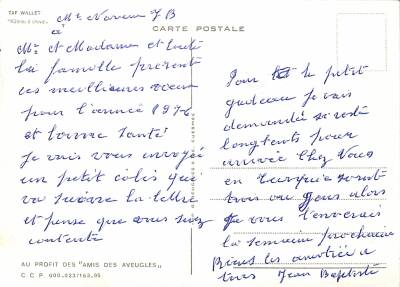 TAF WALLET
CARTE POSTALE
à Mr Noreau J B
Mr et Madame et toute
la famille présente
ces meilleures voeux
pour l'année 1976
et bonne santé!
Je vais vous envoyé
un petit colis qui
va suivre la lettre
et pense que vous serez
contente
AU PROFIT DES "AMIS DES AVEUGLES"
C.C.P. 000.023/163.95
Pour le petit
gadeau je vais
demandé si reste
longtents pour
arrivée Chez Vous
en Turquie si reste
trois ou jous alors
Je vous l'enverais
la semaine prochaine
Biens les amitiée a
tous Jean Baptiste